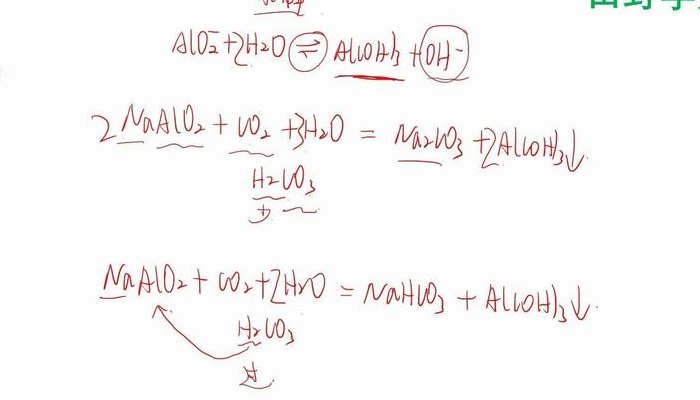 AlO₂⁻+2H₂O⇌Al(OH)₃+OH⁻
2NaAlO₂+CO₂+3H₂O=Na₂CO₃+2Al(OH)₃↓
H₂CO₃
NaAlO₂+CO₂+2H₂O=NaHCO₃+Al(OH)₃↓
H₂CO₃